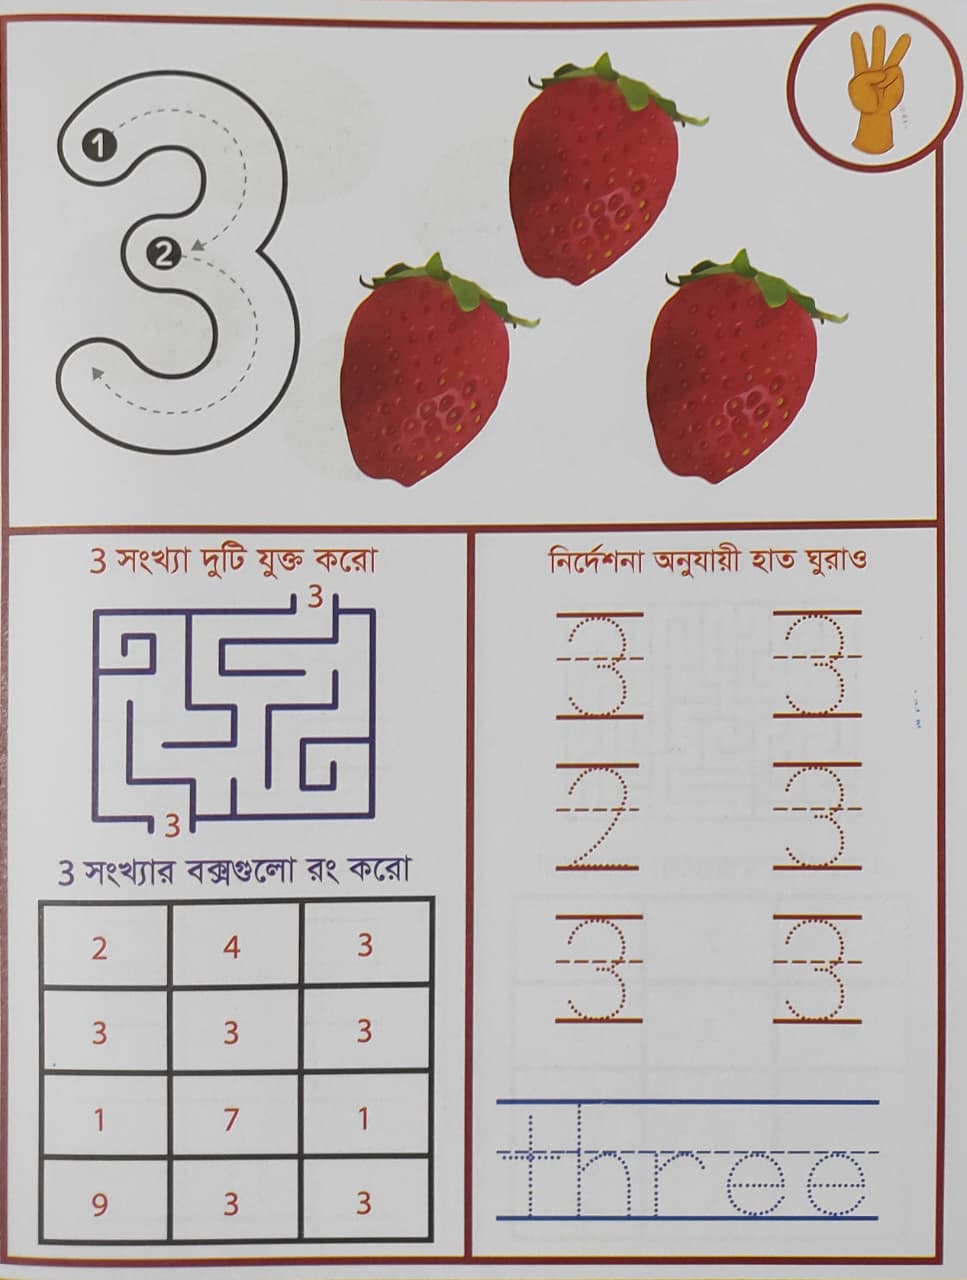 1
2
3
3 সংখ্যা দুটি যুক্ত করো
3
3
3 সংখ্যার বক্সগুলো রং করো
2 4 3
3 3 3
1 7 1
9 3 3
নির্দেশনা অনুযায়ী হাত ঘুরাও
3 3
2 3
3 3
three